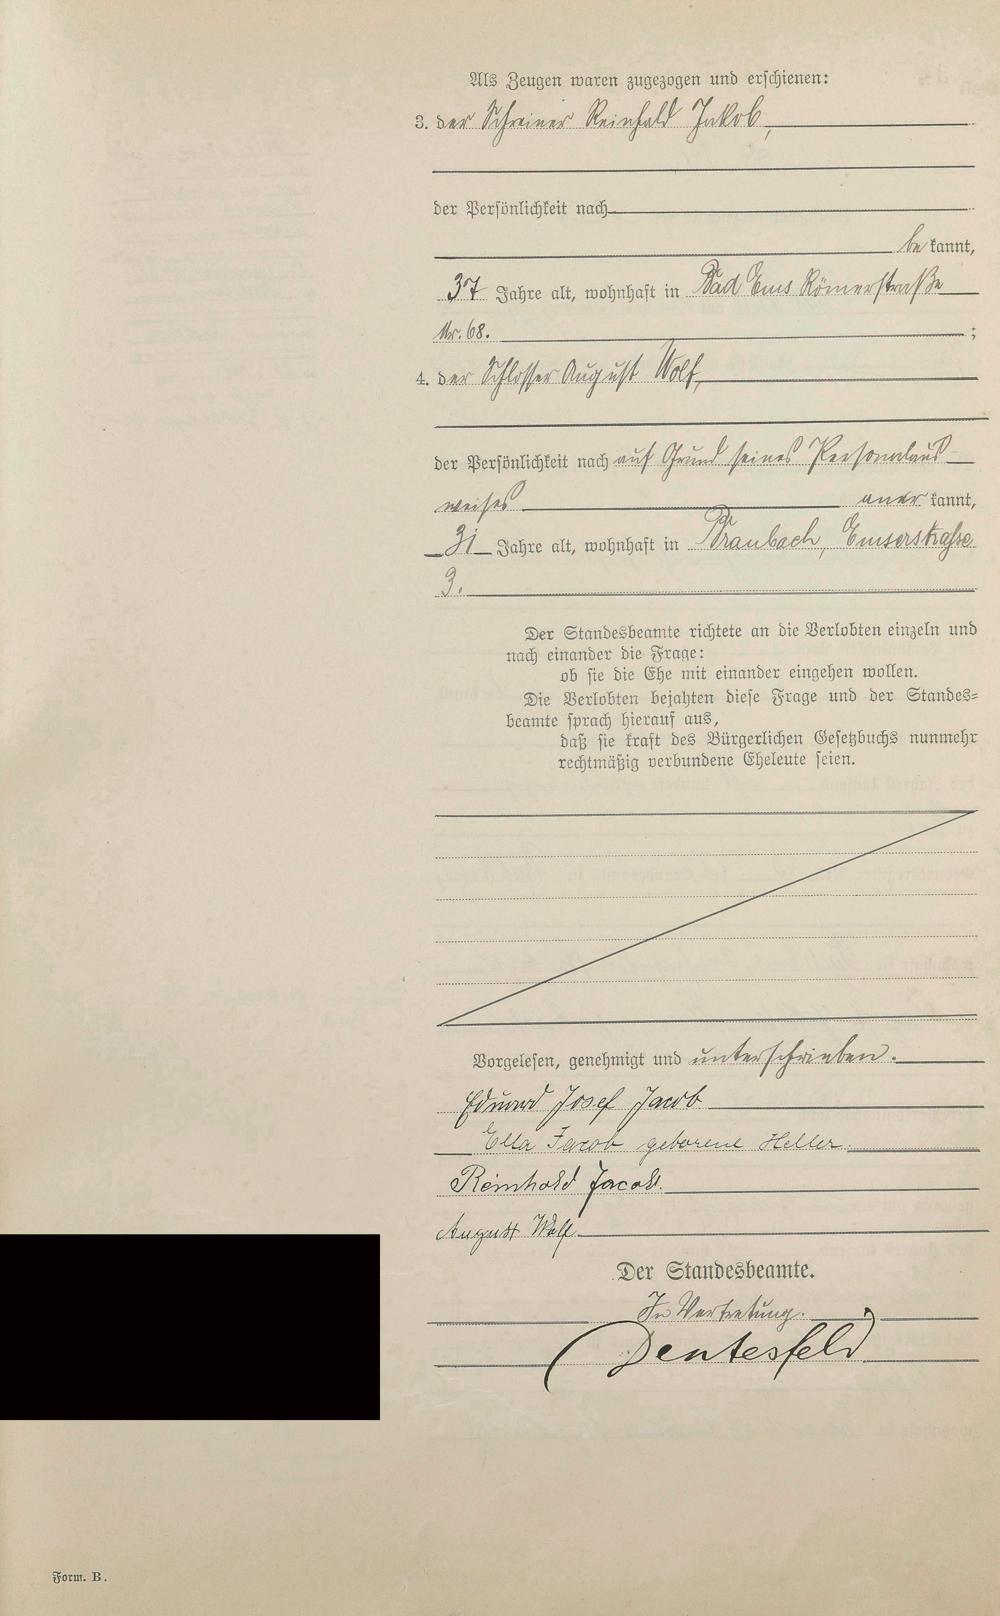 Als Zeugen waren zugezogen und erschienen:
3. der Schreiner Reinhold Jakob,
der Persönlichkeit nach
be kannt,
37 Jahre alt, wohnhaft in Bad Ems Römerstraße
Nr. 68. ;
4. der Schlosser August Wolf,
der Persönlichkeit nach auf Grund seines Personalaus-
weises aner kannt,
31 Jahre alt, wohnhaft in Braubach, Emserstrasse
3.
Der Standesbeamte richtete an die Verlobten einzeln und
nach einander die Frage:
ob sie die Ehe mit einander eingehen wollen.
Die Verlobten bejahten diese Frage und der Standes=
beamte sprach hierauf aus,
daß sie kraft des Bürgerlichen Gesetzbuchs nunmehr
rechtmäßig verbundene Eheleute seien.
Vorgelesen, genehmigt und unterschrieben.
Eduard Josef Jacob
Ella Jacob geborene Heller.
Reinhold Jacob.
August Wolf.
Der Standesbeamte.
In Vertretung.
Dentesfeld
Form. B.